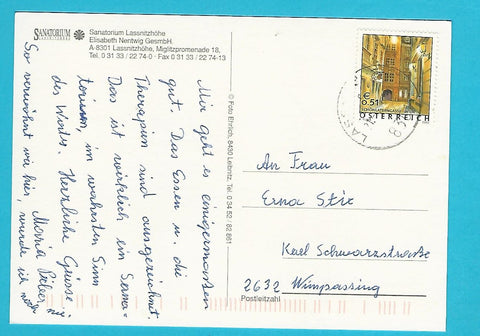 SANATORIUM
LASSNITZHÖHE
Sanatorium Lassnitzhöhe
Elisabeth Nentwig GesmbH.
A-8301 Lassnitzhöhe, Miglitzpromenade 18,
Tel. 0 31 33 / 22 74-0 · Fax 0 31 33 / 22 74-13
Mir geht es einigermassen
gut. Das Essen u. die
Therapien sind ausgezeichnet.
Das ist wirklich ein Sana-
torium, im wahrsten Sinn
des Wortes. Herzliche Grüsse
Maria
So verwöhnt wie hier, wurde ich noch nie
© Foto Ehrlich, 8430 Leibnitz, Tel. 0 34 52 / 82 881
€ 0,51
ÖSTERREICH
An Frau
Erna Stix
Karl Schwarzstraße
2632 Wimpassing
Postleitzahl